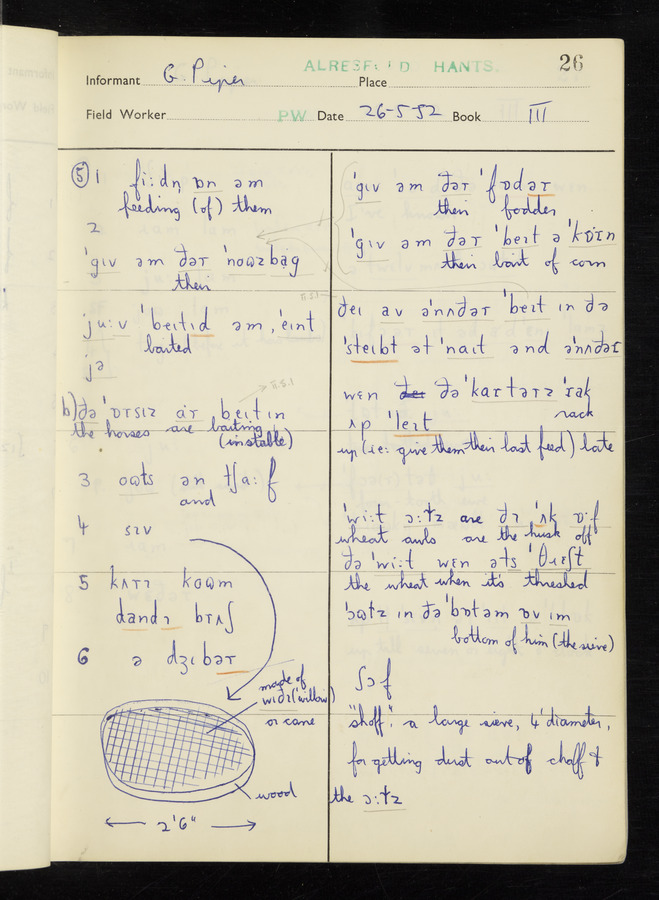 ALRESFORD HANTS.
26
Informant G. Piper Place
Field Worker PW Date 26-5-52 Book III
⑤ 1 fiːdn̩ ɒn əm
feeding (of) them
2
ˈgɪv əm ðəɾ ˈnoʊzbag
their
juːv ˈbeɪtɪd əm, ˈeɪnt
baited
jə
II.5.1
b) ðə ˈɒɾsɪz aɾ beɪtɪn
the horses are baiting
(in stable)
3 oʊts ən tʃaːf
and
4 sɪv
5 kʌɾɪ koʊm
dandɪ bɾʌʃ
6 ə dʒɪbəɾ
made of
wɪðɪ (willow)
or cane
wood
2'6"
ˈgɪv əm ðəɾ ˈfɒdəɾ
their fodder
ˈgɪv əm ðəɾ ˈbeɪt ə ˈkɒɪn
their bait of corn
II.5.1
ðeɪ av ənʌðəɾ ˈbeɪt ɪn ðə
ˈsteɪbt ət ˈnaɪt ənd ənʌðəɾ
wɛn ðə ˈkaɾtəɾz ˈɾak
rack
ʌp ˈleɪt
up (ie: give them their last feed) late
ˈwiːt ɔːtz are ðɪ ˈʌk ɒf
wheat awls are the husk off
ðə ˈwiːt wɛn əts ˈθɾɛʃt
the wheat when it's threshed
ˈɔʊtz ɪn ðə ˈbɒtəm ɒv ɪm
bottom of him (the sieve)
ʃɔf
"shoff": a large sieve, 4' diameter,
for getting dust out of chaff &
the ɔːtz